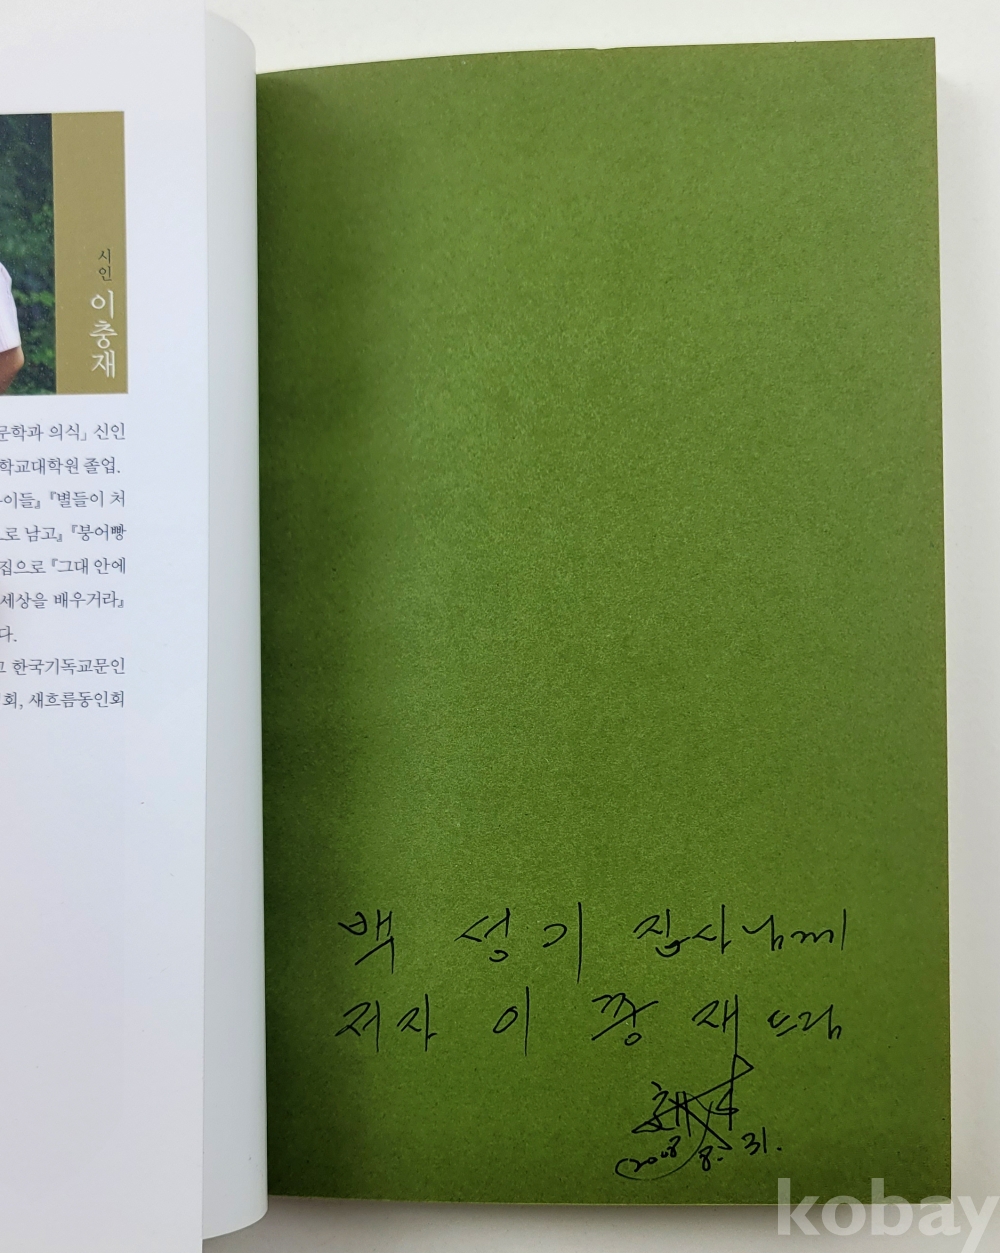 시인
이충재
문학과 의식」 신인
학교대학원 졸업.
이들』 『별들이 처
로 남고』 『붕어빵
집으로 『그대 안에
세상을 배우거라』
다.
한국기독교문인
회, 새흐름동인회
백 성기 집사님께
저자 이 충 재 드림
2008. 8. 31.
kobay